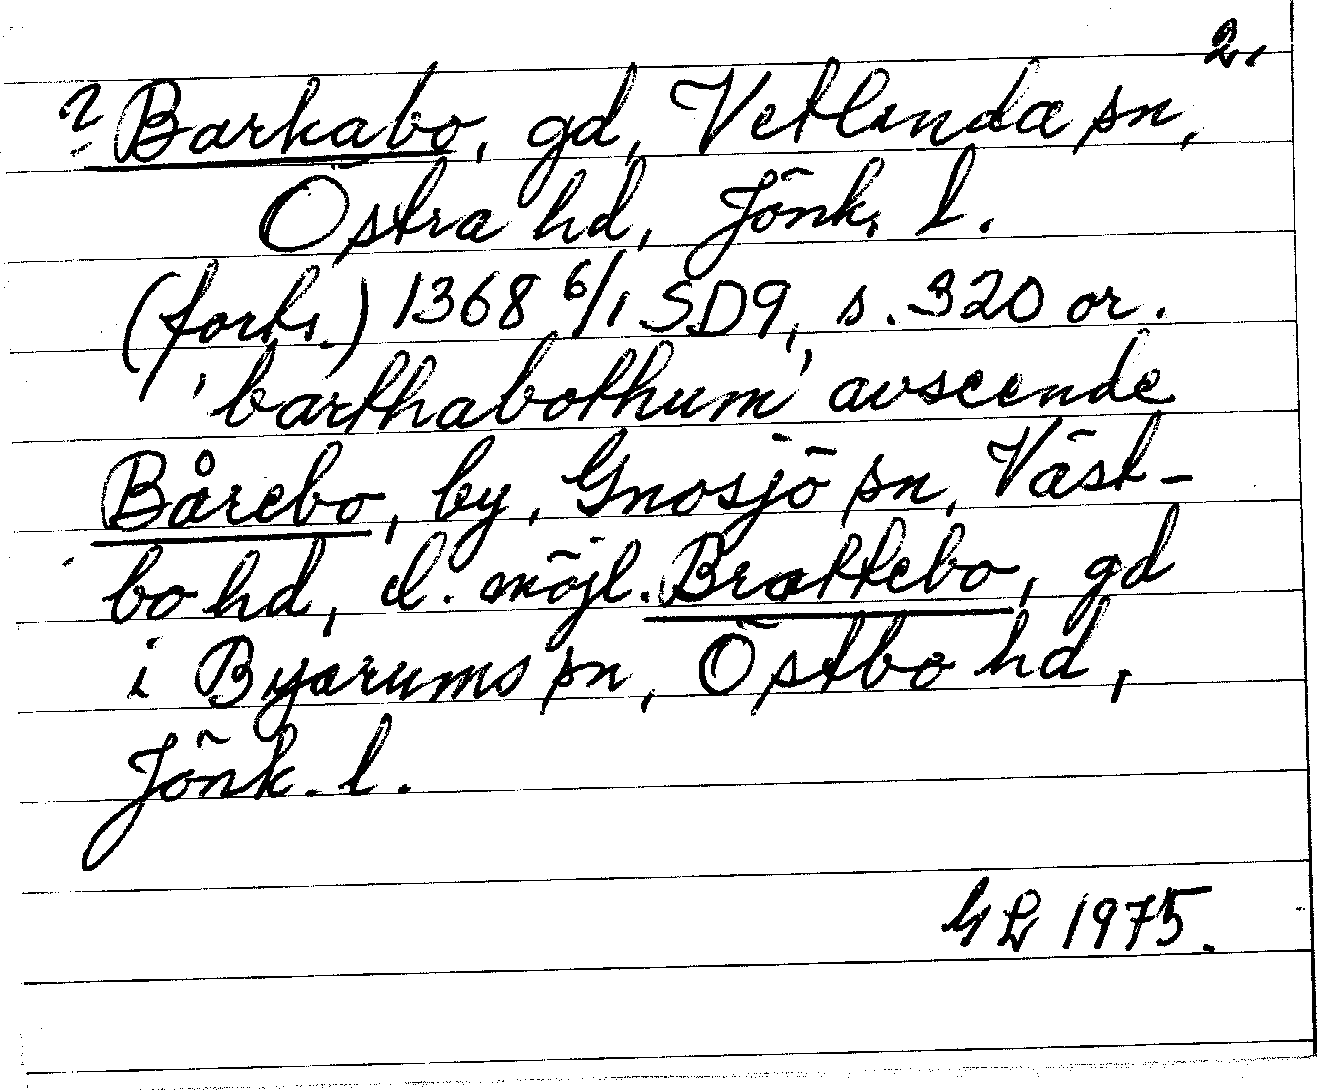 2.
? Barkabo, gd, Vetlanda sn,
Östra hd, Jönk. l.
(forts.) 1368 6/1 SD9, s. 320 or.
'barthabothum' avseende
Bårebo, by, Gnosjö sn, Väst-
bo hd, el. möjl. Brattebo, gd
i Byarums sn, Östbo hd,
Jönk. l.
1975.